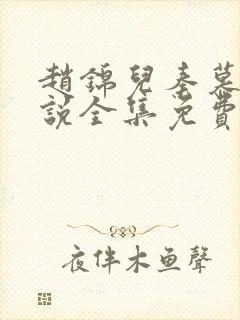 趙錦兒秦慕
說全集免費
夜伴木鱼聲